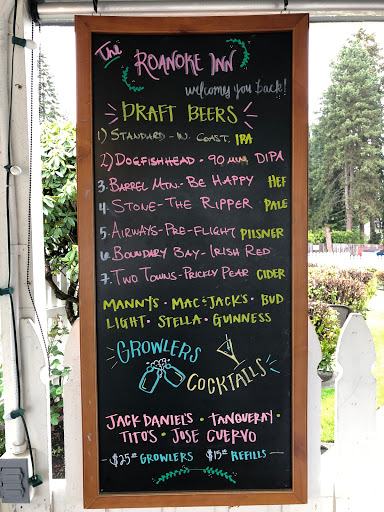 The
ROANOKE INN
welcomes you back!
DRAFT BEERS
1) STANDARD - W. COAST. IPA
2) DOGFISHHEAD - 90 MIN. DIPA
3. BARREL MTN. - BE HAPPY HEF
4. STONE - THE RIPPER PALE
5. AIRWAYS - PRE-FLIGHT PILSNER
6. BOUNDARY BAY - IRISH RED
7. TWO TOWNS - PRICKLY PEAR CIDER
MANNYS • MAC & JACK'S • BUD
LIGHT • STELLA • GUNNESS
GROWLERS
COCKTAILS
JACK DANIEL'S • TANQUERAY •
TITO'S • JOSE CUERVO
- $25.00 GROWLERS $15.00 REFILLS -